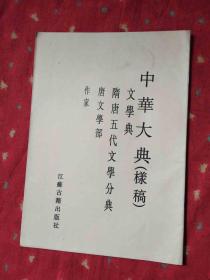 中華大典(樣稿)
文學典
隋唐五代文學分典
唐文學部
作家
江蘇古籍出版社